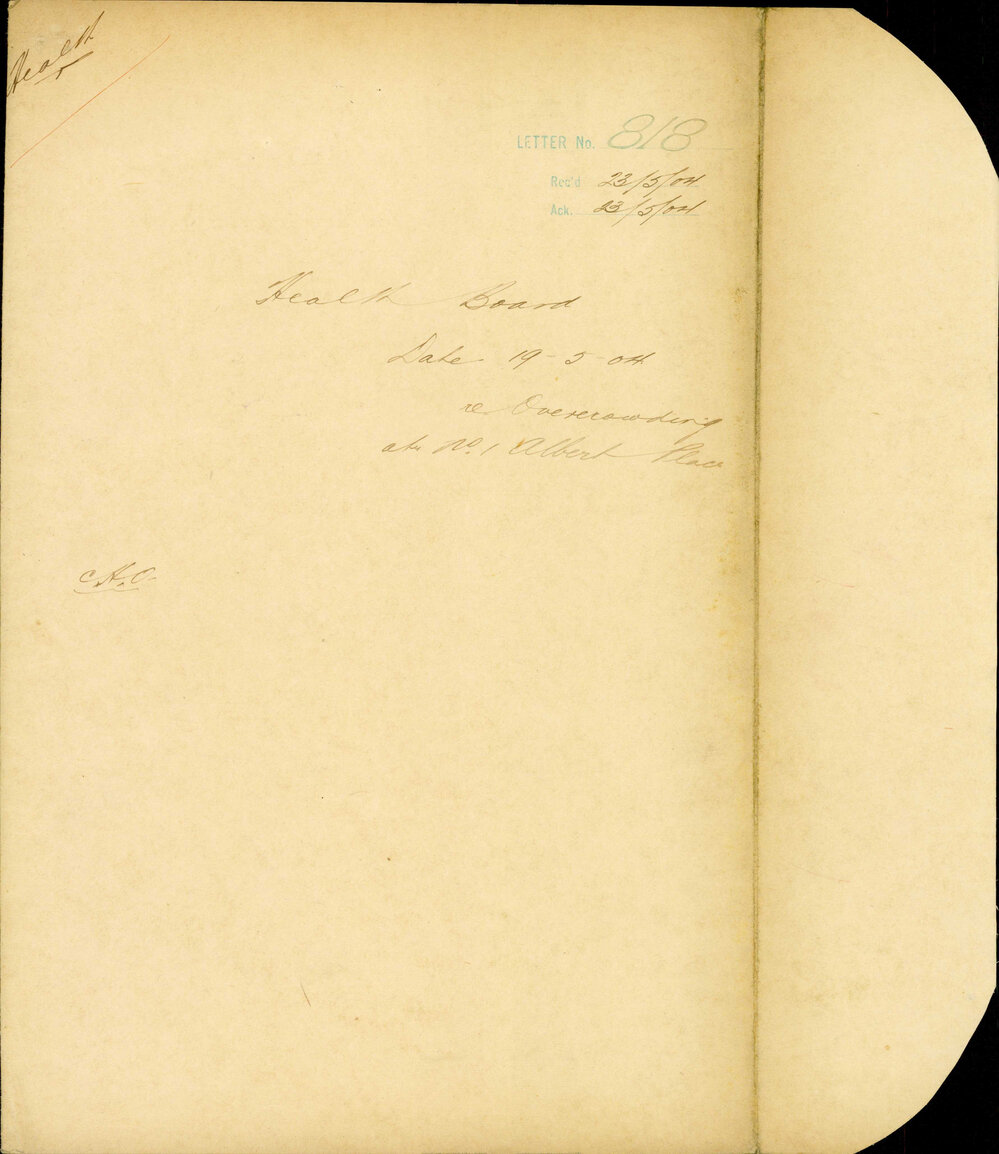 Health
LETTER No. 818
Rec'd 23/5/04
Ack. 23/5/04
Health Board
Date 19-5-04
re Overcrowding
at No. 1 Albert Place
C.H.O.